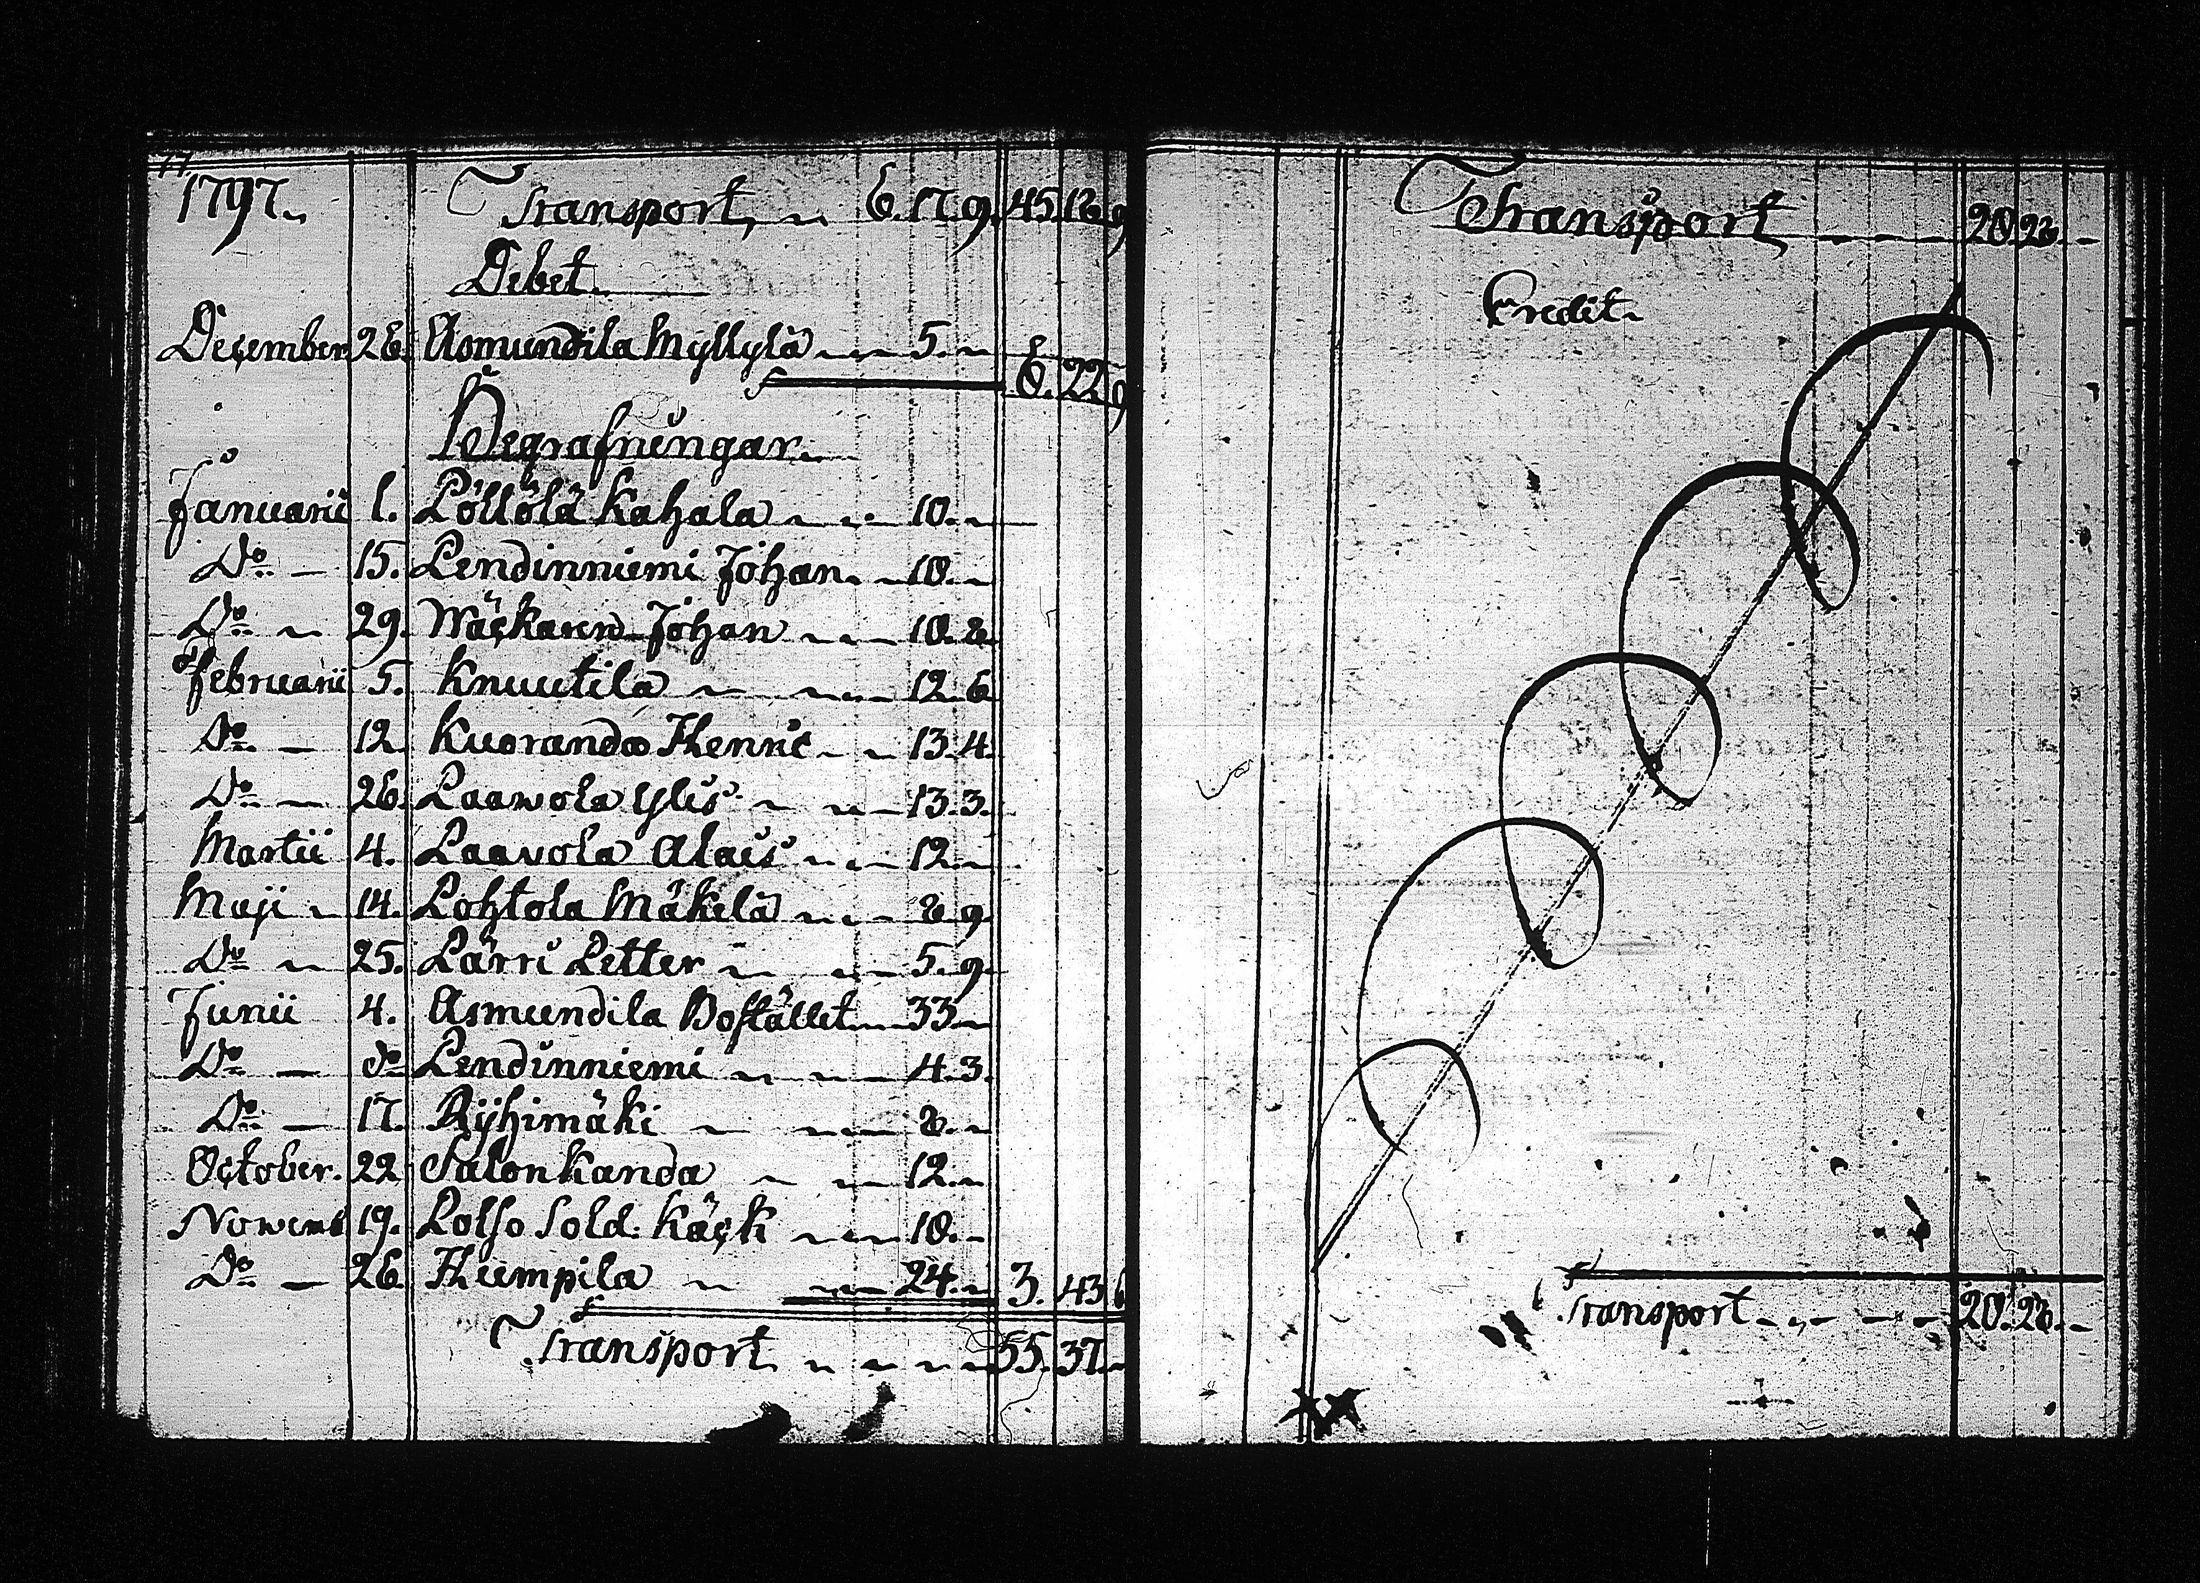 1797.
Transport, 6. 17. 9. 45. 18. 9
Debet.
December 26. Asmundila Myllylä 5.
6. 22. 9
Begrafningar.
Januarii 1. Pöllölä Kahala 10.
Do 15. Lendinniemi Johan 10.
Do 29. Wäckaren Johan 10. 8.
Februarii 5. Knuutila 12. 6
Do 12. Kuoranda Henric 13. 4.
Do 26. Laawola Ylis 13. 3.
Martii 4. Laavola Alais 12.
Maji 14. Lohtola Mäkelä 8. 9.
Do 25. Lärri Petter 5. 9.
Junii 4. Asmundila Bostället 33
Do do Lendinniemi 4. 3.
Do 17. Rÿhimäki 8.
October. 22 Salonkanda 12.
Novemb 19. Polso Sold: Käck 10.
Do 26. Humpila 24. 3. 43. 6
Transport 55. 37.
Transport 20. 28.
Credit.
Transport 20. 28.